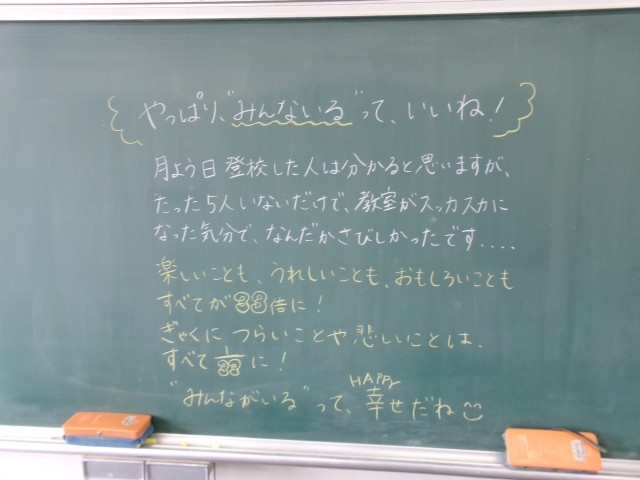 やっぱり、"みんないる"って、いいね!
月よう日登校した人は分かると思いますが、
たった5人いないだけで、教室がスッカスカに
なった気分で、なんだかさびしかったです.....
楽しいことも、うれしいことも、おもしろいことも
すべてが33倍に!
ぎゃくに つらいことや悲しいことは、
すべて1/33に!
HAPPY
"みんながいる"って、幸せだね